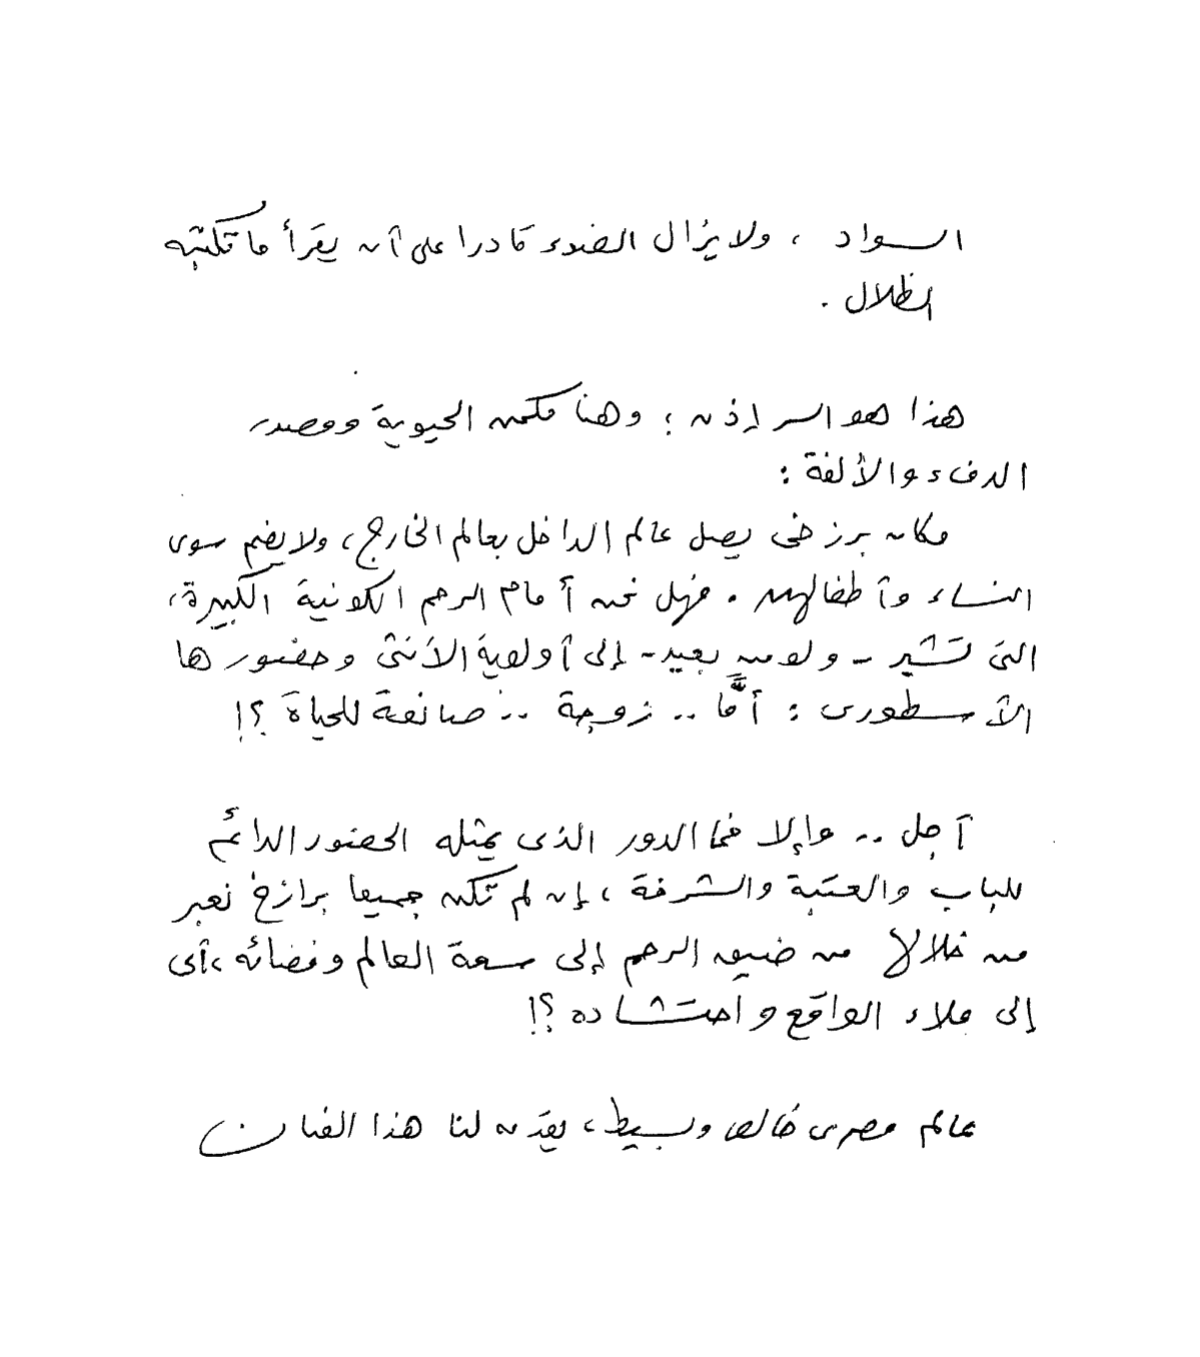 السواد ، ولا يزال الضوء قادرا على أن يقرأ ما تكتبه
الظلال .
هذا هو السر إذن ؛ وهنا مكمن الحيوية ومصدر
الدفء والألفة :
مكان برزخى يصل عالم الداخل بعالم الخارج ، ولا يضم سوى
النساء وأطفالهن . فهل نحن أمام الرحم الكونية الكبيرة ،
التى تشير - ولو من بعيد - إلى أولوية الأنثى وحضورها
الأسطورى : أمًّا .. زوجة .. صانعة للحياة ؟!
أجل .. وإلا فما الدور الذى يمثله الحضور الدائم
للباب والعتبة والشرفة ، إن لم تكن جميعا برازخ نعبر
من خلالها من ضيق الرحم إلى سعة العالم وفضائه ، أى
إلى ملاء الواقع واحتشاده ؟!
عالم مصرى خالص وبسيط ، يقدمه لنا هذا الفنان